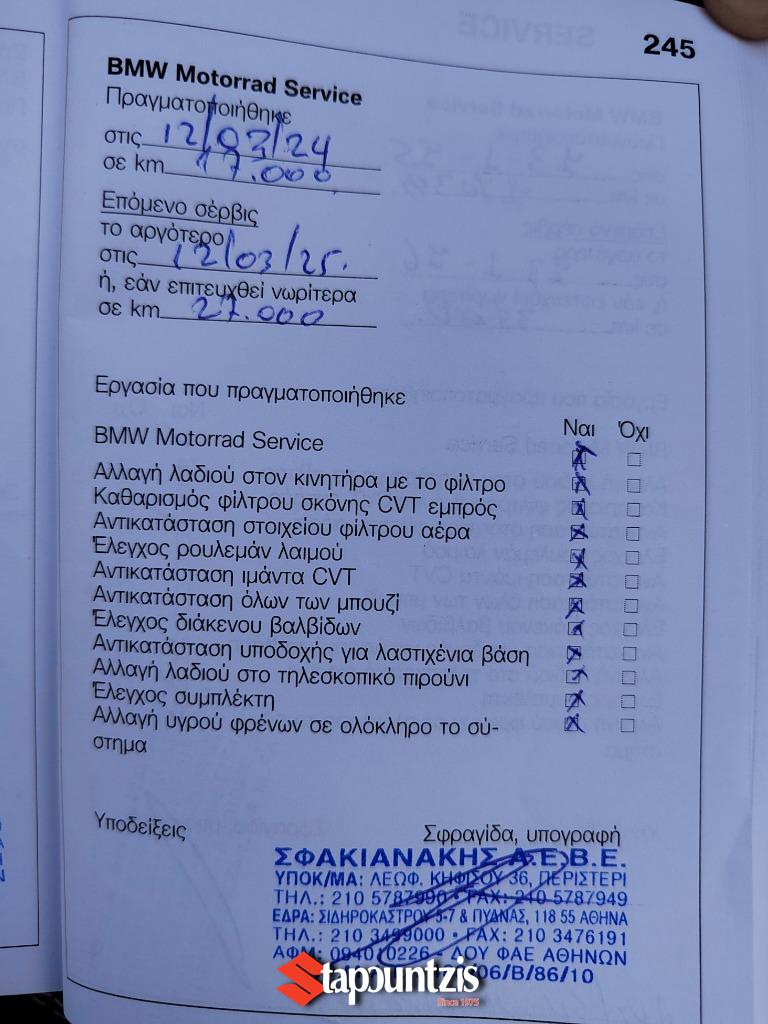 245
BMW Motorrad Service
Πραγματοποιήθηκε
στις 12/03/24
σε km 17.000
Επόμενο σέρβις
το αργότερο
στις 12/03/25.
ή, εάν επιτευχθεί νωρίτερα
σε km 27.000
Εργασία που πραγματοποιήθηκε
Ναι Όχι
BMW Motorrad Service
Αλλαγή λαδιού στον κινητήρα με το φίλτρο
Καθαρισμός φίλτρου σκόνης CVT εμπρός
Αντικατάσταση στοιχείου φίλτρου αέρα
Έλεγχος ρουλεμάν λαιμού
Αντικατάσταση ιμάντα CVT
Αντικατάσταση όλων των μπουζί
Έλεγχος διάκενου βαλβίδων
Αντικατάσταση υποδοχής για λαστιχένια βάση
Αλλαγή λαδιού στο τηλεσκοπικό πιρούνι
Έλεγχος συμπλέκτη
Αλλαγή υγρού φρένων σε ολόκληρο το σύ-
στημα
Υποδείξεις Σφραγίδα, υπογραφή
ΣΦΑΚΙΑΝΑΚΗΣ Α.Ε.Β.Ε.
ΥΠΟΚ/ΜΑ: ΛΕΩΦ. ΚΗΦΙΣΟΥ 36, ΠΕΡΙΣΤΕΡΙ
ΤΗΛ.: 210 5787990 • FAX: 210 5787949
ΕΔΡΑ: ΣΙΔΗΡΟΚΑΣΤΡΟΥ 5-7 & ΠΥΔΝΑΣ, 118 55 ΑΘΗΝΑ
ΤΗΛ.: 210 3499000 • FAX: 210 3476191
ΑΦΜ: 094010226 - ΔΟΥ ΦΑΕ ΑΘΗΝΩΝ
/06/B/86/10
Stapountzis
Since 1975